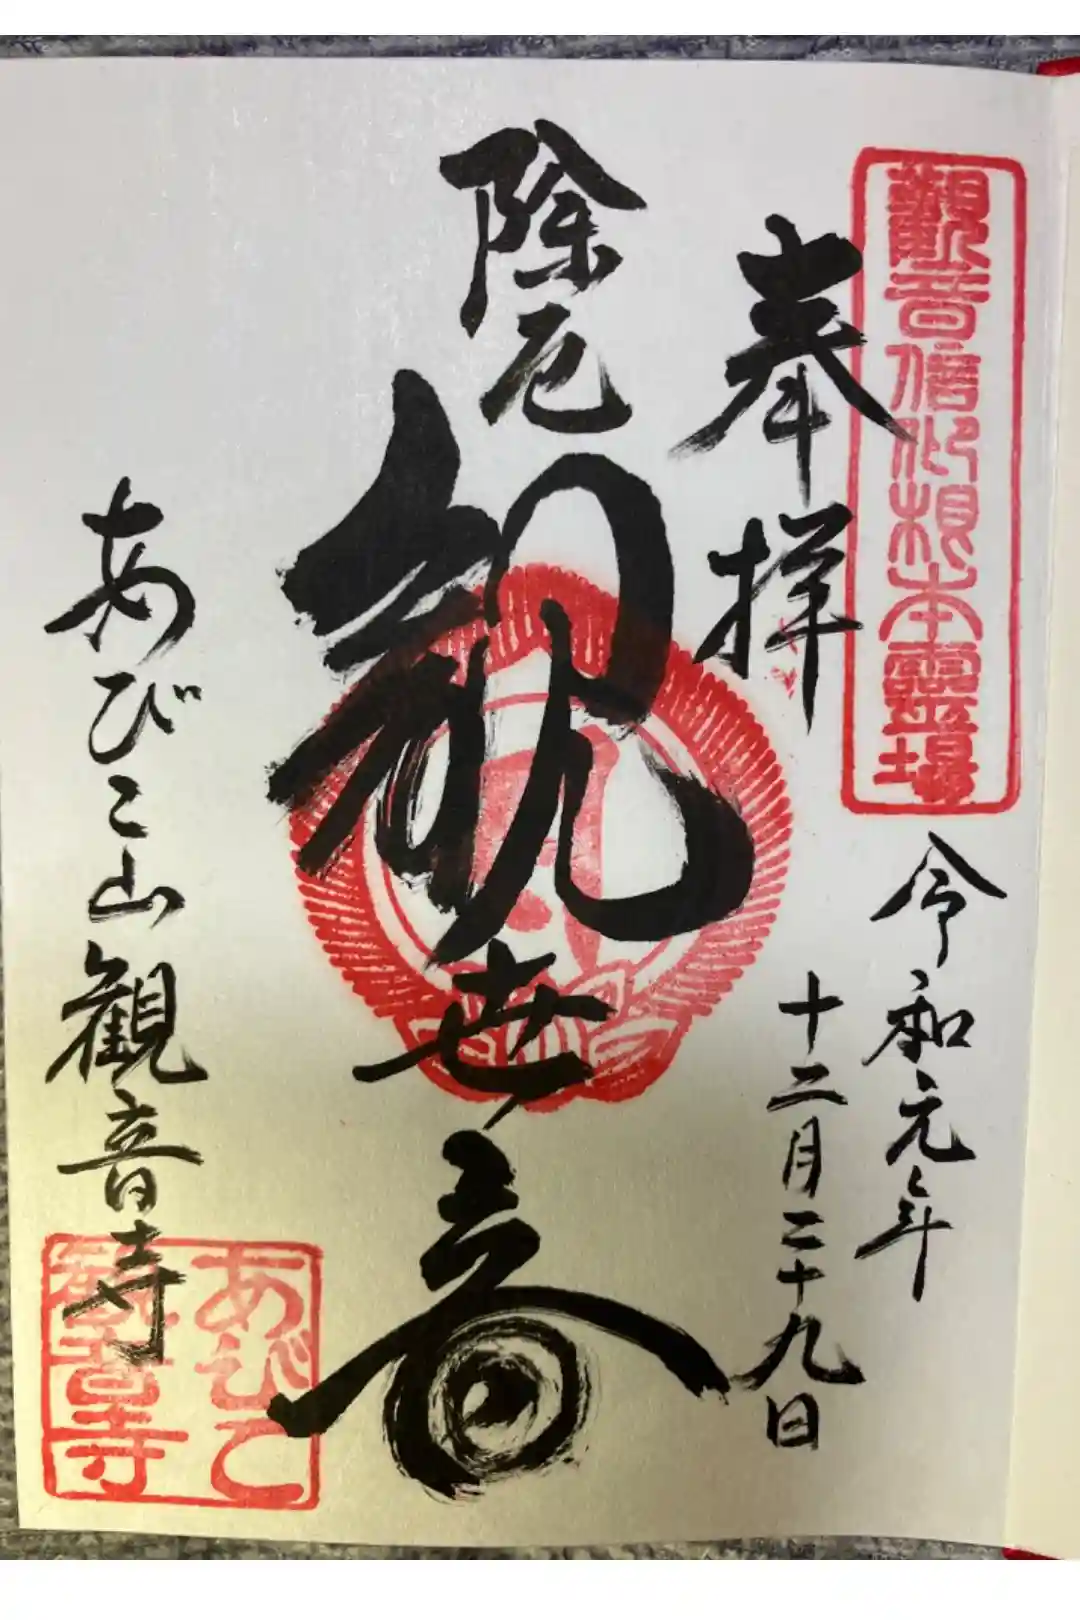 觀音信仰根本霊場
奉拝
令和元年
十二月二十九日
除厄
観世音
あびこ山観音寺
あびこ
観音寺